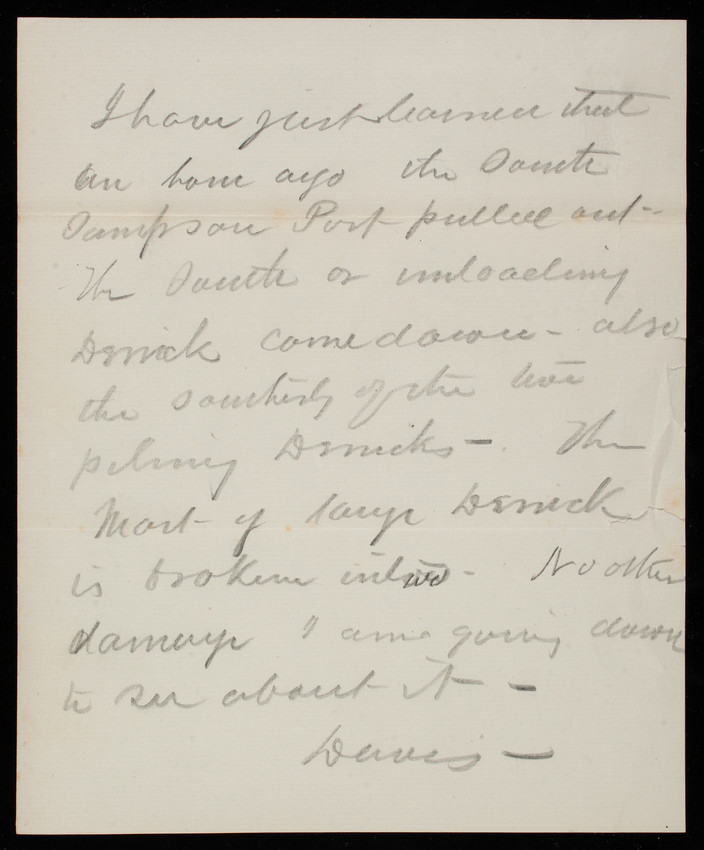 I have just learned that
an hour ago the South
Sampson Post pulled out-
The South or unloading
Derrick come down - also
the southerly of the two
piling Derricks -. The
Mast of large Derrick
is broken in two - No other
damage I am going down
to see about it -
Davis -